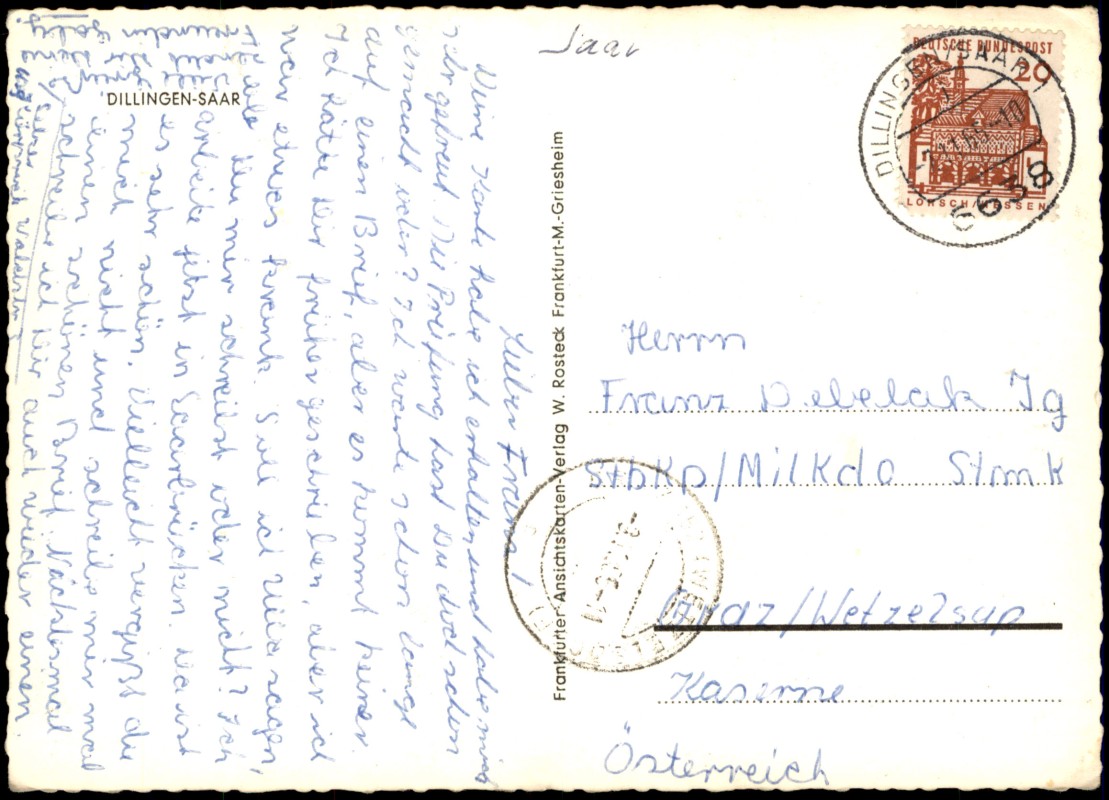 Saar
DILLINGEN-SAAR
Frankfurter Ansichtskarten-Verlag W. Rosteck Frankfurt-M.-Griesheim
DEUTSCHE BUNDESPOST
20
LORSCH/HESSEN
DILLINGEN/SAAR
6638
Lieber Franz!
Deine Karte habe ich erhalten und habe mich
sehr gefreut. Die Prüfung hast Du doch schon
gemacht oder? Ich warte schon lange
auf einen Brief, aber es kommt keiner.
Ich hätte Dir früher geschrieben, aber ich
war etwas krank. Soll ich
Du mir schreibst oder nicht? Ich
arbeite jetzt in Saarbrücken. Da ist
es sehr schön. Vielleicht vergißt du
mich nicht und schreibst mir mal
einen schönen Brief. Nächstesmal
schreibe ich Dir auch wieder einen
Herrn
Franz Debelak Jg
StbKp/MilKdo Stmk
Graz/Wetzelsdp
Kaserne
Österreich